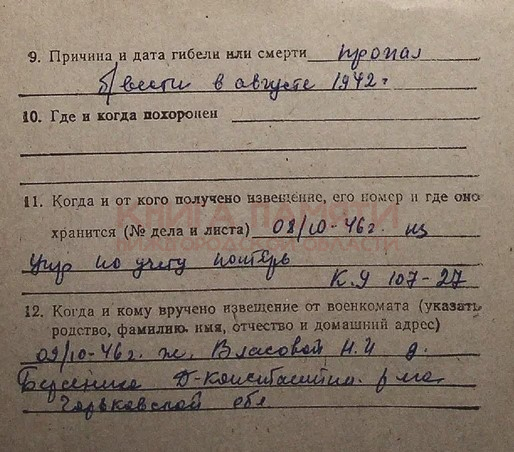 9. Причина и дата гибели или смерти пропал
б/вести в августе 1942 г
10. Где и когда похоронен
11. Когда и от кого получено извещение, его номер и где оно
КНИГА ПАМЯТИ
НИЖЕГОРОДСКОЙ ОБЛАСТИ
хранится (№ дела и листа) 08/10-46г. из
Упр по учету потерь
К.У 107-27
12. Когда и кому вручено извещение от военкомата (указать
родство, фамилию, имя, отчество и домашний адрес)
09/10-46г. ж. Власовой Н.И д.
Березники Д-Константин. р-на
Горьковской обл